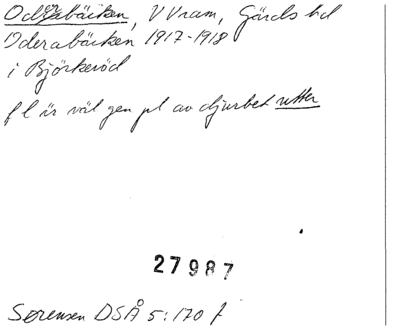 Oderabäcken, V Vram, Gärds hd
Oderabäcken 1917-1918
i Björkeröd
f l är väl gen pl av djurbet utter
27987
Sørensen DSÅ 5:170 f